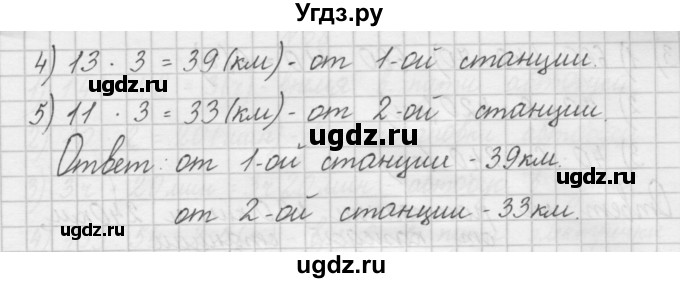 Угдз.ру
4) 13 · 3 = 39 (км) - от 1-ой станции.
ugdz.ru
5) 11 · 3 = 33 (км) - от 2-ой станции.
ugdz.ru
Ответ: от 1-ой станции - 39 км.
ugdz.ru
ugdz.ru
от 2-ой станции - 33 км.
ugdz.ru
ugdz.ru